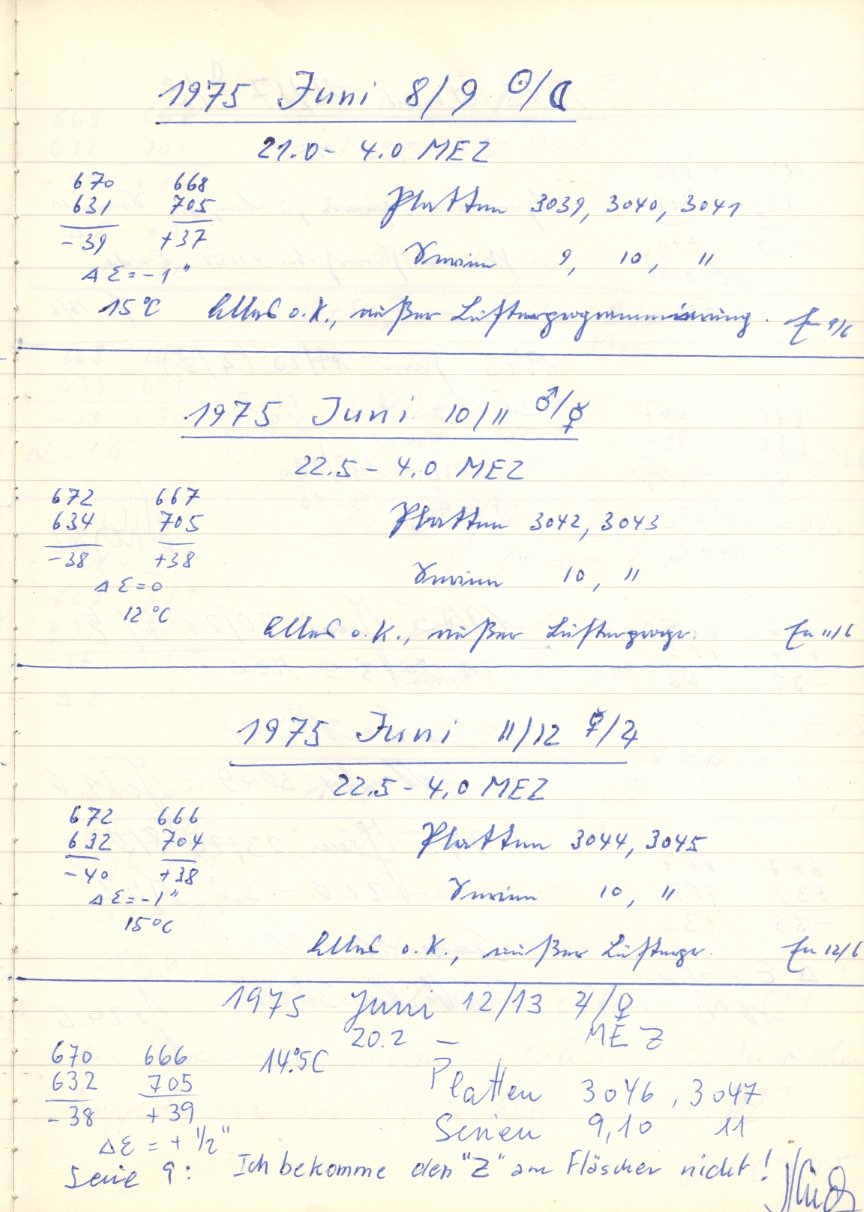 1975 Juni 8/9 ☉/☾
21.0 - 4.0 MEZ
670 668 Platten 3039, 3040, 3041
631 705
-39 +37 Serien 9, 10, 11
Δε = -1"
15°C Alles o.K., außer Lüfterprogrammierung. 9/6
1975 Juni 10/11 ♂/☿
22.5 - 4.0 MEZ
672 667
634 705 Platten 3042, 3043
-38 +38
Δε = 0 Serien 10, 11
12°C
Alles o.K., außer Lüfterprogr. 11/6
1975 Juni 11/12 ☿/♃
22.5 - 4.0 MEZ
672 666
632 704 Platten 3044, 3045
-40 +38
Δε = -1" Serien 10, 11
15°C
Alles o.K., außer Lüfterpr. 12/6
1975 Juni 12/13 ♃/♀
20.2 – MEZ
670 666 14.5°C
632 705 Platten 3046, 3047
-38 +39 Serien 9,10 11
Δε = + 1/2"
Serie 9: Ich bekomme den "Z" am Fläscher nicht!